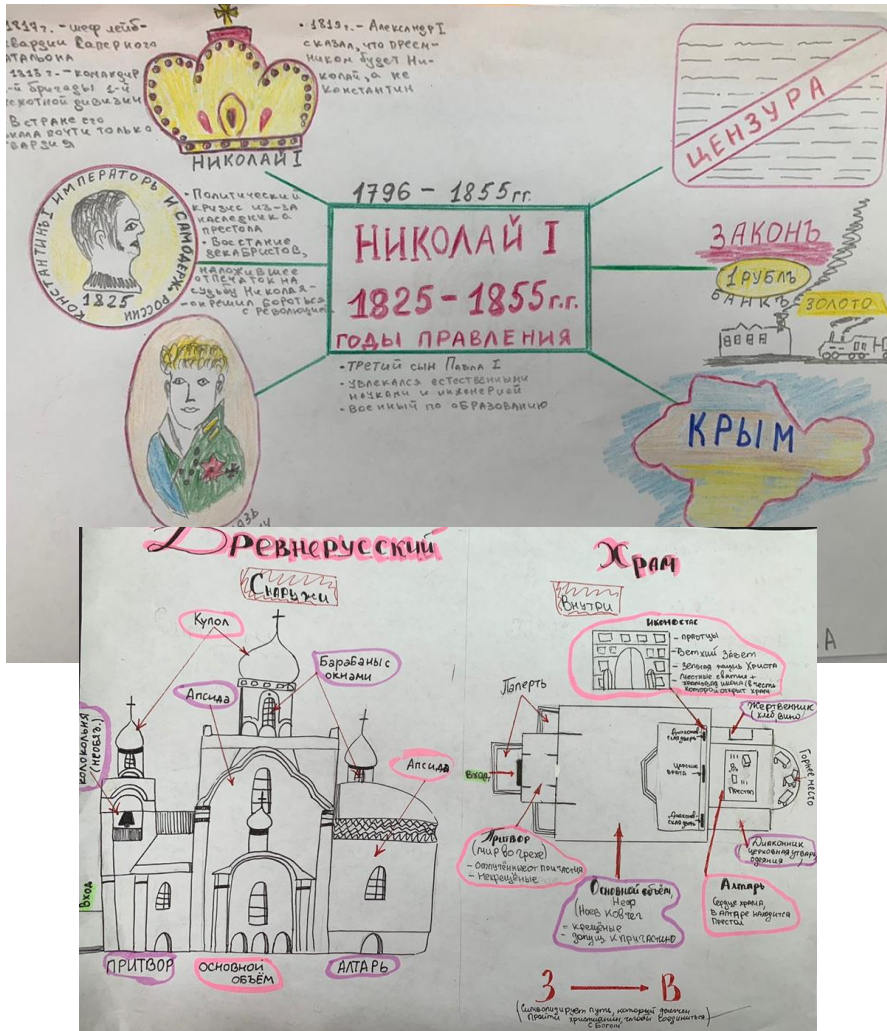 1817г. - шеф лейб-
гвардии Саперного
батальона
1818г. - командир
-й бригады 1-й
пехотной дивизии
В стране его
знала почти только
гвардия
НИКОЛАЙ I
• 1819г. - Александр I
сказал, что преем-
ником будет Ни-
колай, а не
Константин
ЦЕНЗУРА
КОНСТАНТИНЪ I ИМПЕРАТОРЪ И САМОДЕРЖ. РОССИИ
1825
• Политический
кризис из-за
наследника
престола
• Восстание
декабристов,
наложившее
отпечаток на
судьбу Николая-
- он решил бороться
с революцией
1796 - 1855гг.
НИКОЛАЙ I
1825 - 1855г.г.
ГОДЫ ПРАВЛЕНИЯ
• Третий сын Павла I
• увлекался естественными
науками и инженерией
• Военный по образованию
ЗАКОНЪ
1 РУБЛЬ
БАНКЪ
ЗОЛОТО
КРЫМ
Древнерусский
Храм
Снаружи
Купол
Барабаны с
окнами
Апсида
Колокольня
(необяз.)
Апсида
Вход
ПРИТВОР
ОСНОВНОЙ
ОБЪЁМ
АЛТАРЬ
Внутри
Иконостас
- праотцы
- Ветхий Завет
- Земная жизнь Христа
- местные святые +
храмовая икона (в честь
которой открыт храм
Паперть
Вход
Жертвенник
(хлеб, вино)
Царские
врата
Престол
Горнее место
Притвор
(мир во грехе)
- отлучённые от причастия
- некрещёные
Основной объём,
Неф
(Ноев Ковчег
- крещёные
- допущ. к причастию
Алтарь
Сердце храма,
в алтаре находится
Престол
Диаконник
церковная утварь
одеяния
З → В
(Символизирует путь, который должен
пройти христианин, чтобы соединиться
с Богом)